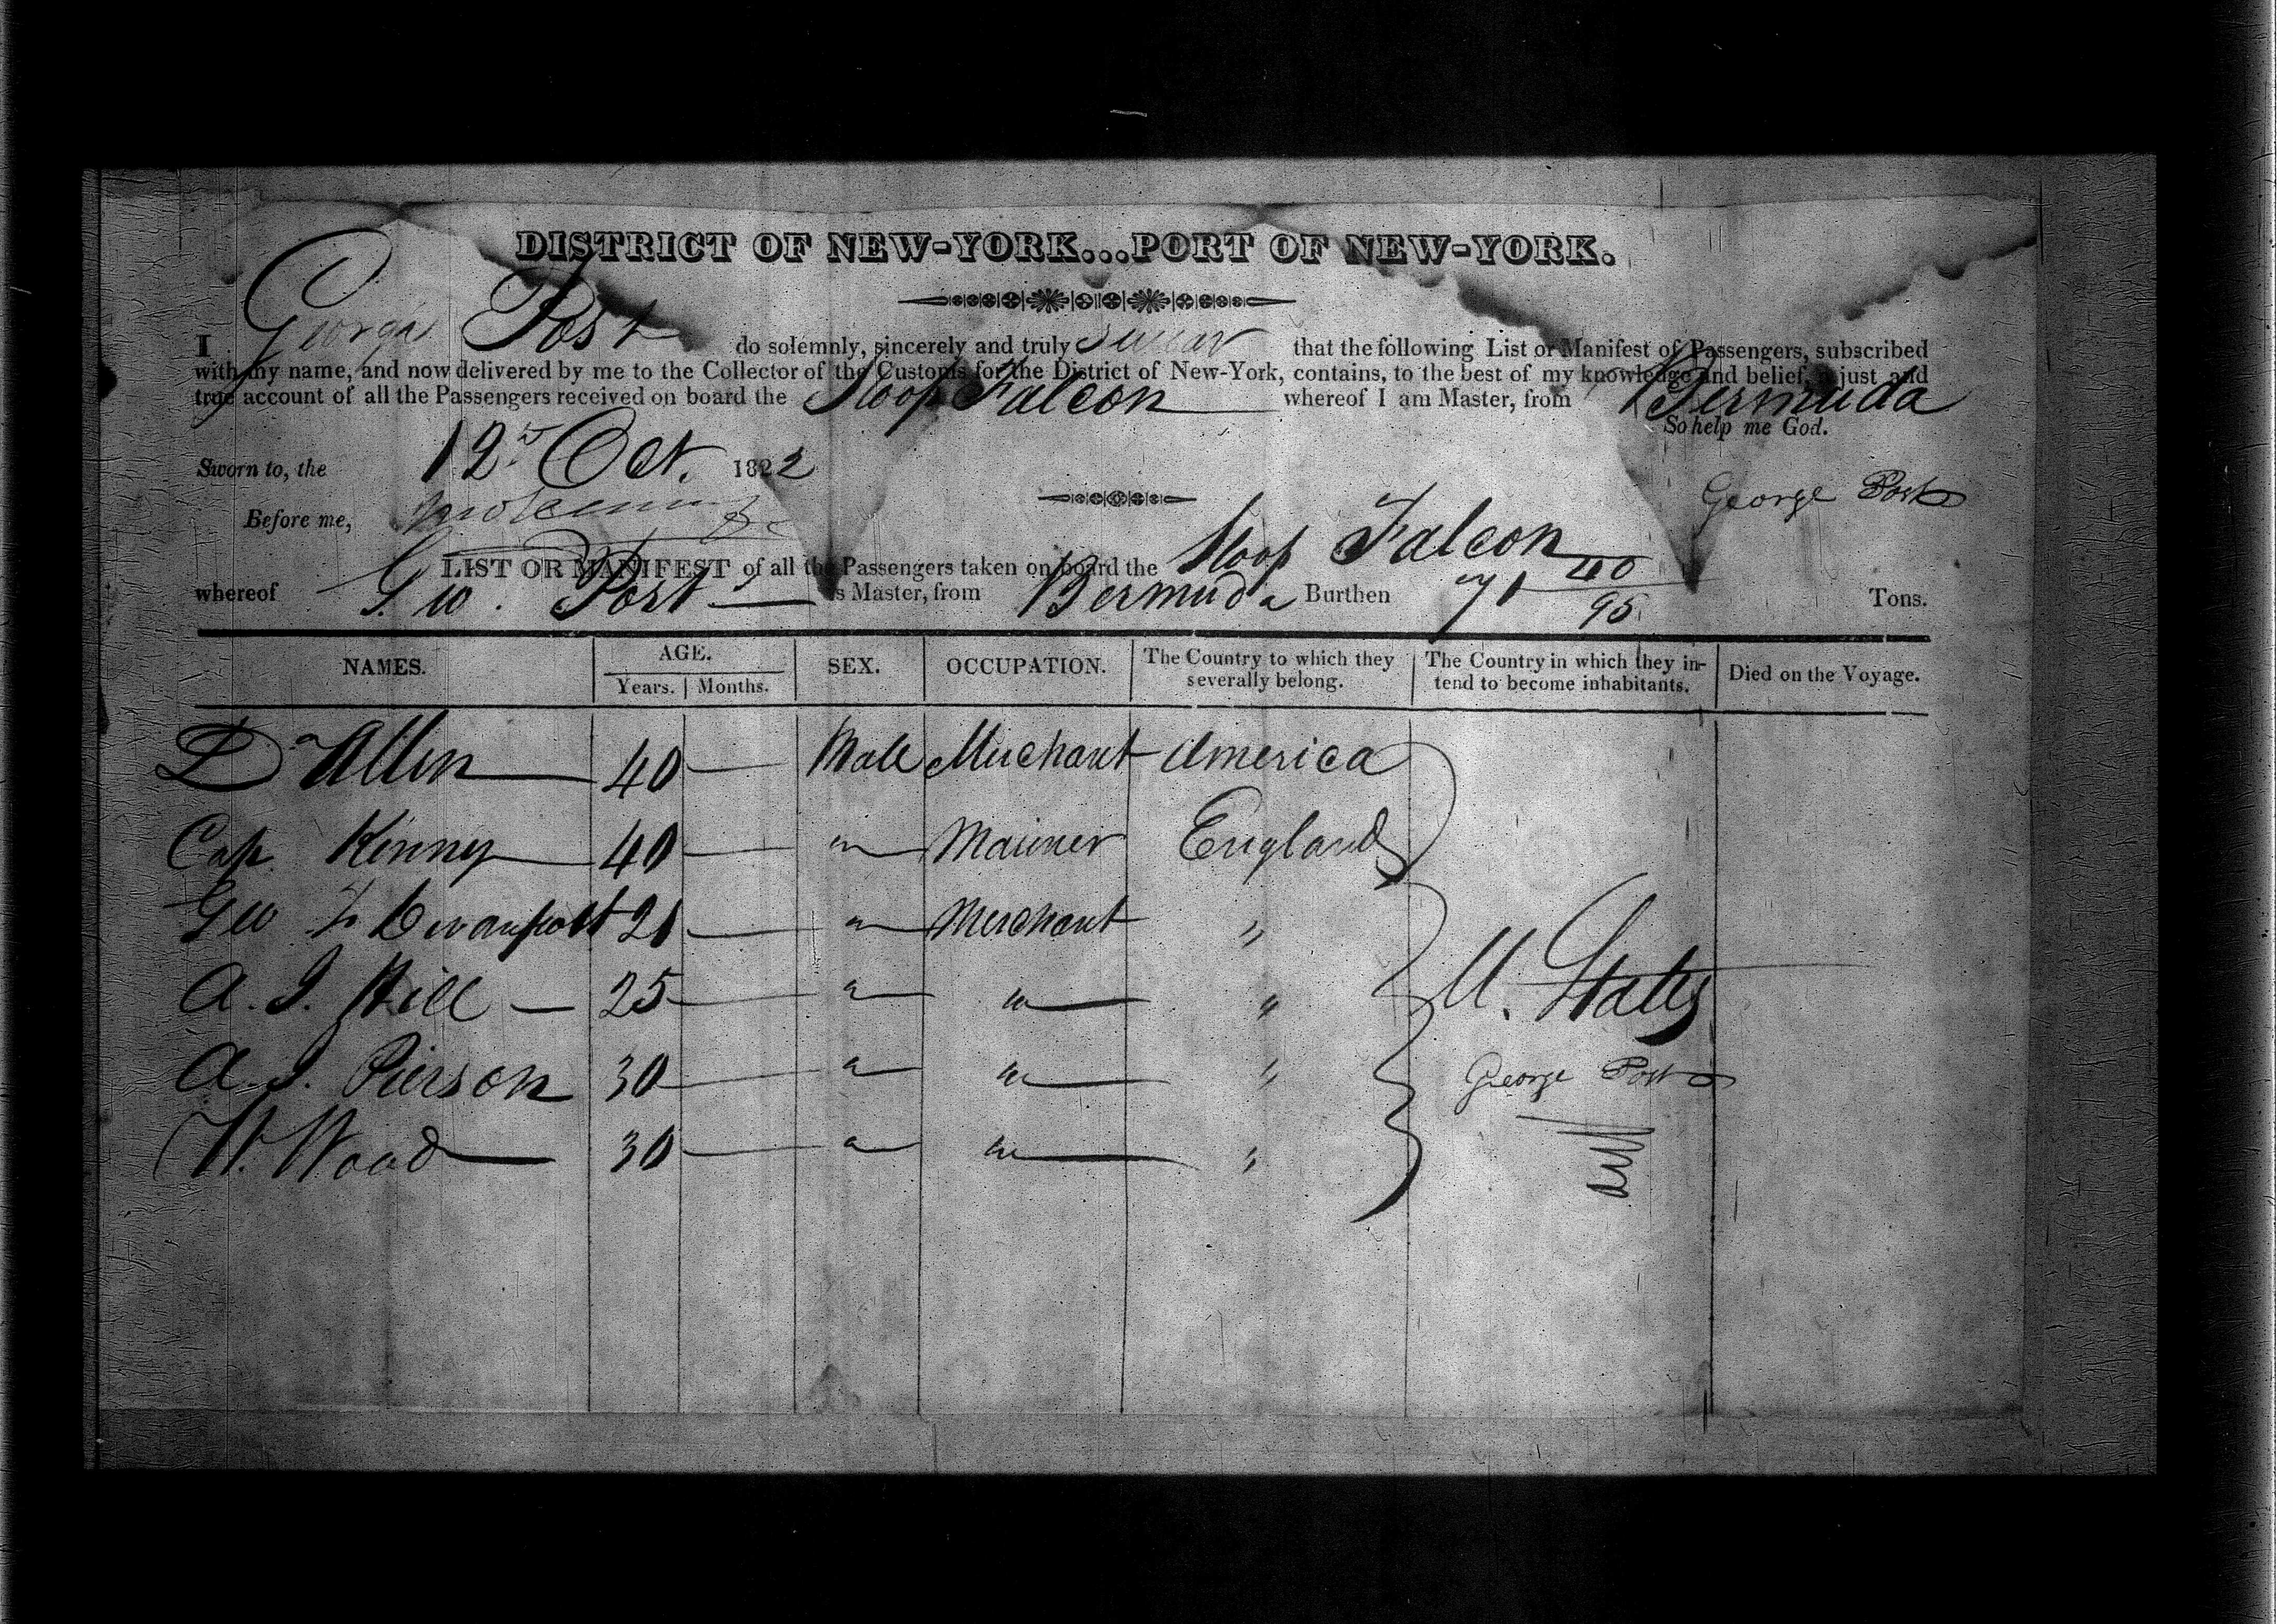 DISTRICT OF NEW-YORK...PORT OF NEW-YORK.
I George Post do solemnly, sincerely and truly swear that the following List or Manifest of Passengers, subscribed
with my name, and now delivered by me to the Collector of the Customs for the District of New-York, contains, to the best of my knowledge and belief, a just and
true account of all the Passengers received on board the Sloop Falcon whereof I am Master, from Bermuda
So help me God.
Sworn to, the 12 Oct. 1822
George Post
Before me,
LIST OR MANIFEST of all the Passengers taken on board the Sloop Falcon
whereof Geo. Post is Master, from Bermuda Burthen 71 40/95 Tons.
NAMES. AGE. SEX. OCCUPATION. The Country to which they severally belong. The Country in which they intend to become inhabitants. Died on the Voyage.
Years. Months.
D Allen 40 — Male Merchant America
Cap. Kenny 40 — " Mariner England
Geo 21 — " Merchant "
A. J. Hill — 25 — " " "
U. States
A. J. Pierson 30 — " " "
George Post
W. Wood 30 — " " "